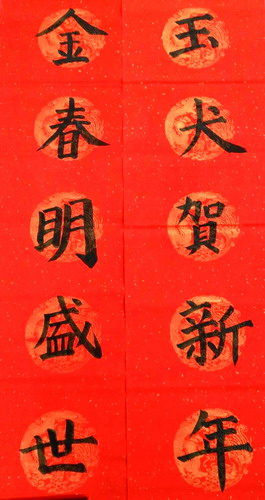 玉犬賀新年
金春明盛世